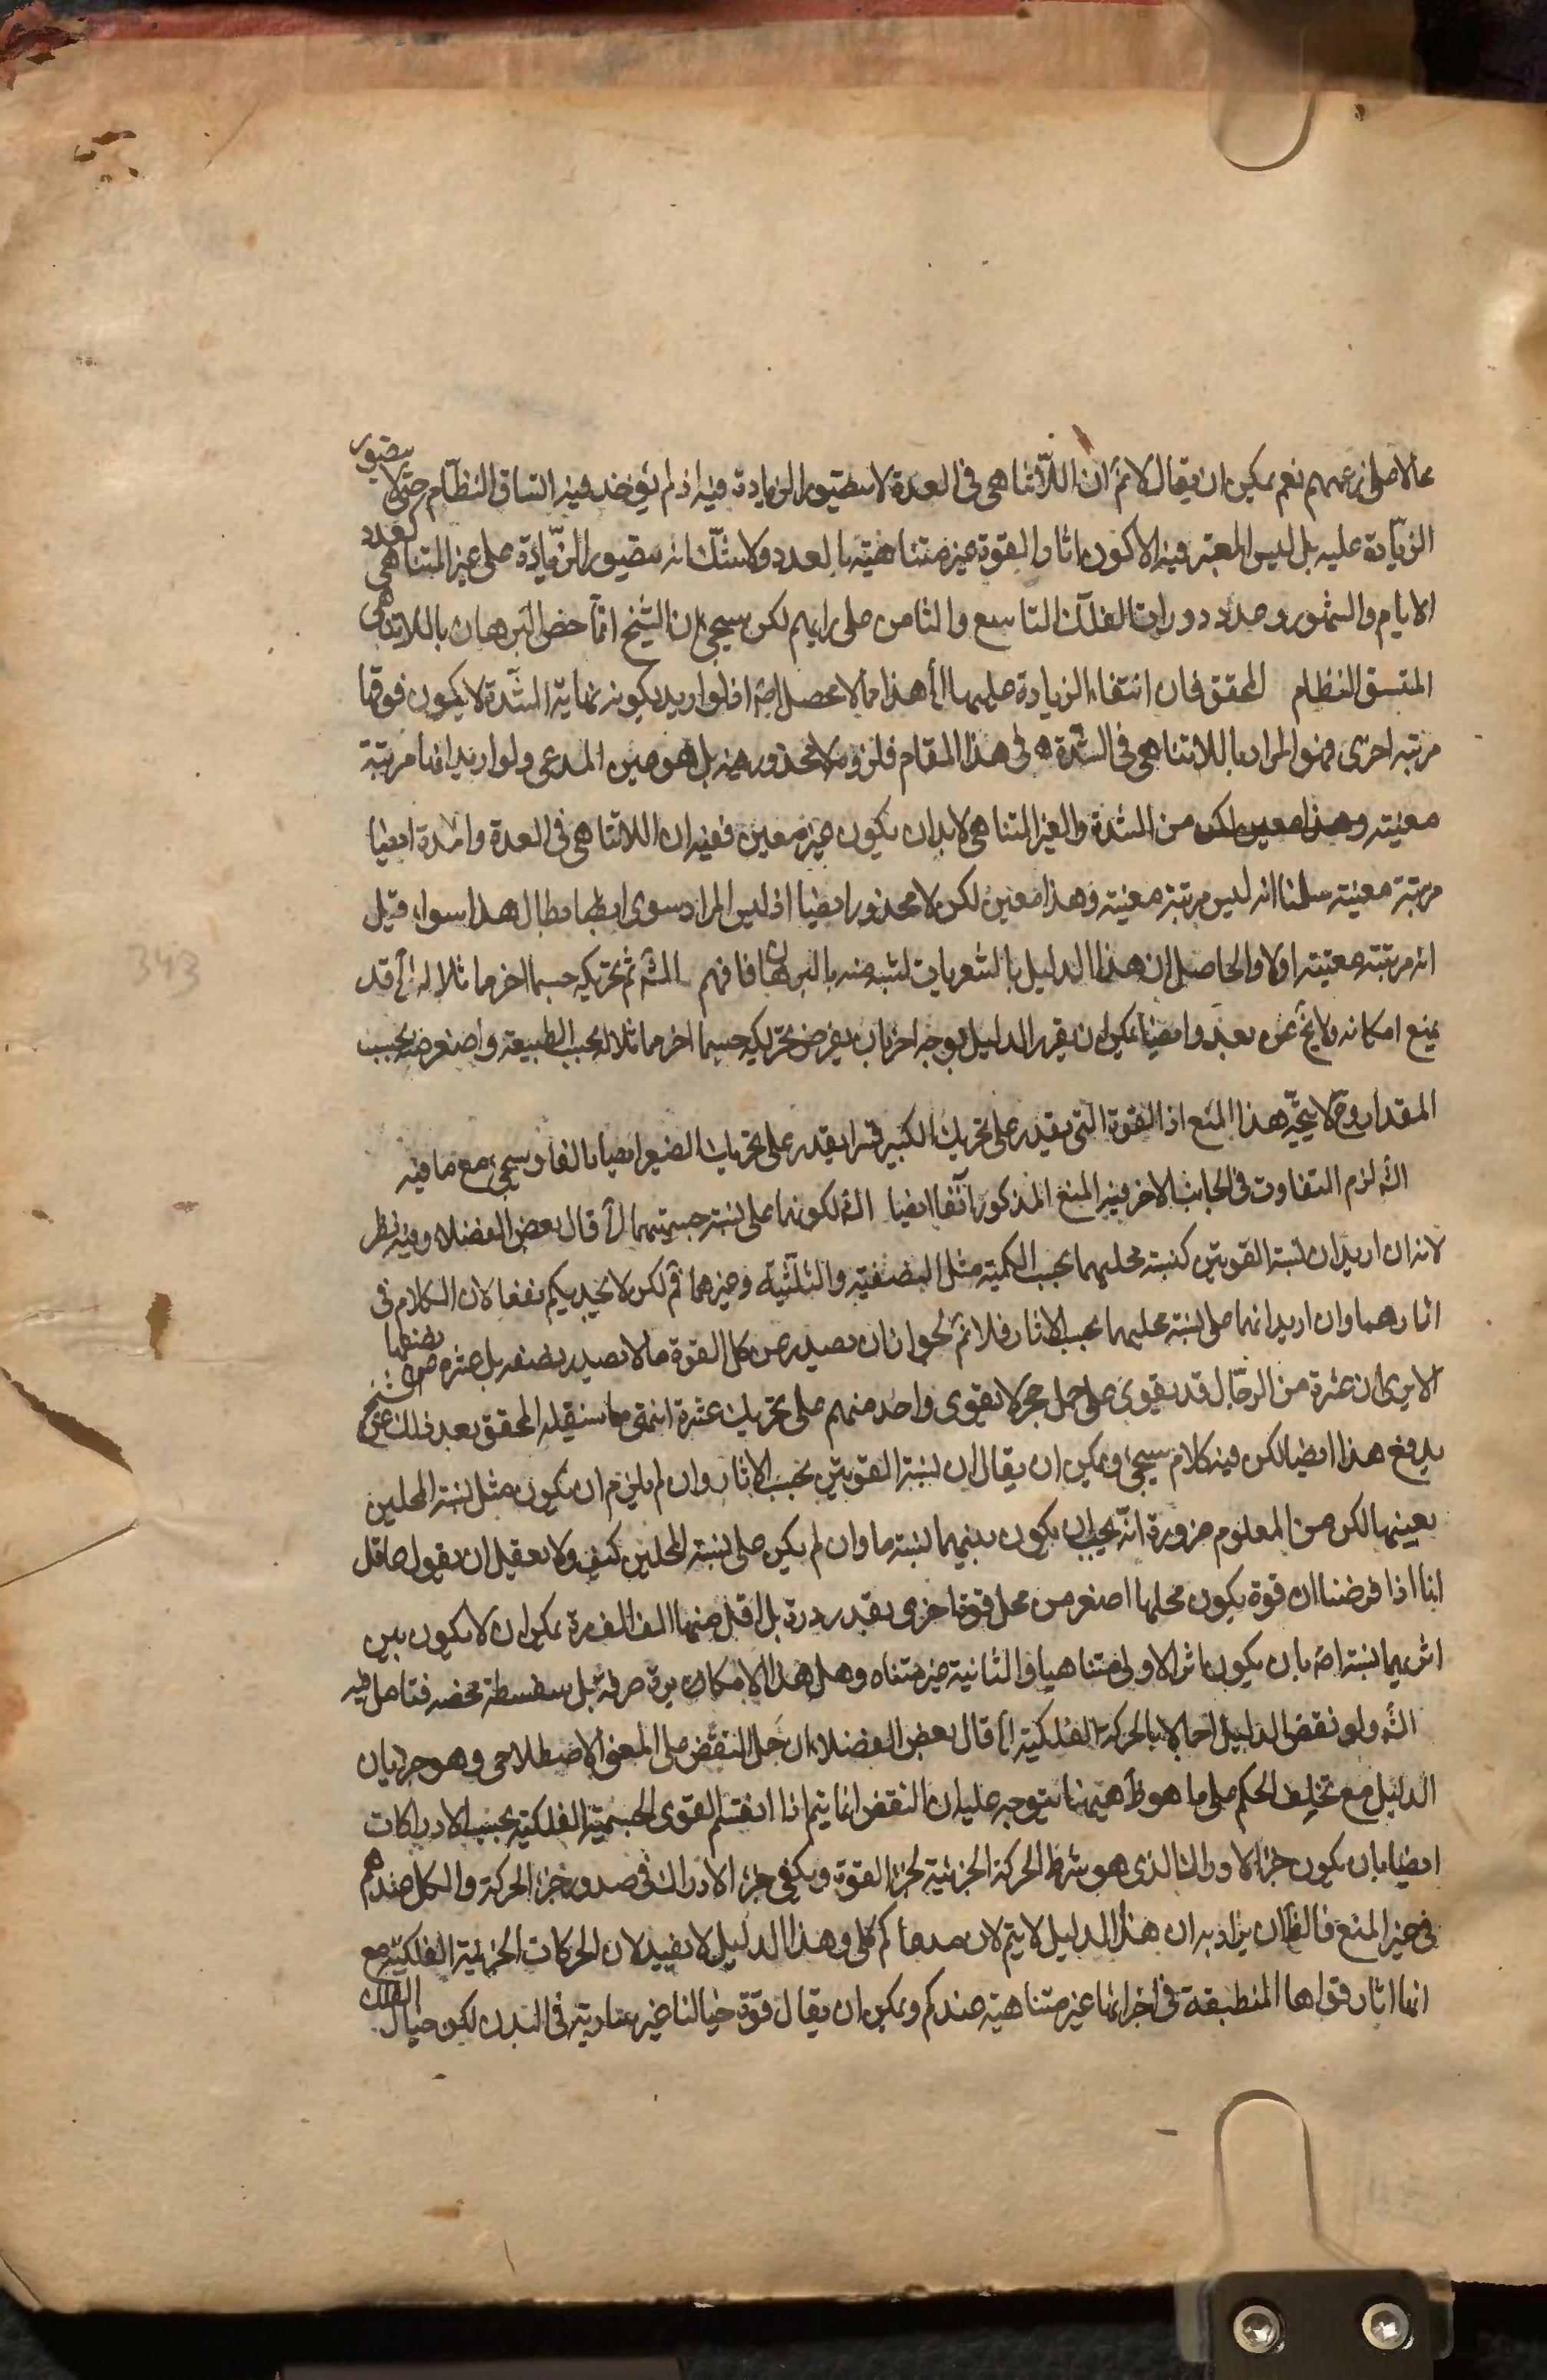 عما لا على زعمهم نعم يمكن ان يقال لا نم ان اللاتناهى فى العدة لا يتصور الزيادة فيه اذ لم يؤخذ فيه اتساق النظام حتى لا يتصور
الزيادة عليه بل ليس المعتبر فيه الا كون اثار القوة غير متناهية بالعدد ولا شك انه يتصور الزيادة على غير المتناهى كعدد
الايام والشهور وعدد دورات الفلك التاسع والثامن على رايهم لكن سيجئ ان الشيخ انما خص البرهان باللاتناهى
المتسق النظام المحقق فان انتفاء الزيادة عليها الخ هذا مما لا محصل له اذ لو اريد بكونه نهاية الشدة لا يكون فوقها
مرتبة اخرى فهو المراد باللاتناهى فى الشدة فى هذا المقام فلزومه لا محذور فيه بل هو عين المدعى ولو اريد انها مرتبة
معينة وهذا معين لكن من الشدة والغير المتناهى لا بد ان يكون غير معين ففيه ان اللاتناهى فى العدة والمدة ايضا
مرتبة معينة سلمنا انه ليس مرتبة معينة وهذا معين لكن لا محذور ايضا اذ ليس المراد سوى ابطال هذا سواء قيل
انه مرتبة معينة اولا والحاصل ان هذا الدليل بالشعريات اشبه منه بالبرهان فافهم الش ثم تحريكه جسما اخر مماثلا له الخ قد
يمنع امكانه ولا يخ عن بعد وايضا يمكن ان يقرر الدليل بوجه اخر بان يفرض تحريكه جسما اخر مماثلا له بحسب الطبيعة واصغر منه بحسب
المقدار وح لا يتجه هذا المنع اذ القوة التى يقدر على تحريك الكبير قسرا يقدر على تحريك الصغير ايضا بالفا وسيجئ مع ما فيه
الش لزم التفاوت فى الجانب الاخر فيه المنع المذكور آنفا ايضا الش لكونها على نسبة جسميتهما الخ قال بعض الفضلاء وفيه نظر
لانه ان اريد ان نسبة القوتين كنسبة محليهما بحسب الكمية مثل النصفية والثلثية وغيرهما فم لكن لا يجديكم نفعا لان الكلام فى
اثارهما وان اريد انها على نسبة محليهما بحسب الاثار فلا نم لجواز ان يصدر عن كل القوة ما لا يصدر نصفه بل عشره من نصفها
الا يرى ان عشرة من الرجال قد يقوى على حمل حجر لا يقوى واحد منهم على تحريك عشره انتهى وما سينقله المحقق بعد ذلك عن الشيخ
يدفع هذا ايضا لكن فيه كلام سيجئ ويمكن ان يقال ان نسبة القوتين بحسب الاثار وان لم يلزم ان يكون مثل نسبة المحلين
بعينها لكن من المعلوم ضرورة انه يجب ان يكون بينهما نسبة ما وان لم يكن على نسبة المحلين كيف ولا يعقل ان يقول عاقل
انا اذا فرضنا ان قوة يكون محلها اصغر من محل قوة اخرى بقدر ذرة بل اقل منها الف الف مرة يمكن ان لا يكون بين
اثريهما نسبة اصلا بان يكون اثر الاولى متناهيا والثانية غير متناه وهل هذا الا مكابرة صرفة بل سفسطة محضه فتامل فيه
الش ولو نقض الدليل اجمالا بالحركة الفلكية الخ قال بعض الفضلاء ان حمل النقض على المعنى الاصطلاحى وهو جريان
الدليل مع تخلف الحكم على ما هو ظ هيهنا يتوجه عليه ان النقض انما يتم اذا انقسم القوى الجسمية الفلكية بحسب الادراكات
ايضا بان يكون جزء الادراك الذى هو شرط الحركة الجزئية لجزء القوة ويكفى جزء الادراك فى صدور جزء الحركة والكل عندهم
فى حيز المنع فالظ ان يراد به ان هذا الدليل لا يتم لان مدعاكم كلى وهذا الدليل لا يفيد لان الحركات الجزئية الفلكية مع
انها اثار قواها المنطبعة فى اجرامها غير متناهية عندكم ويمكن ان يقال قوة خيالنا غير سارية فى البدن لكن خيال الفلك
343